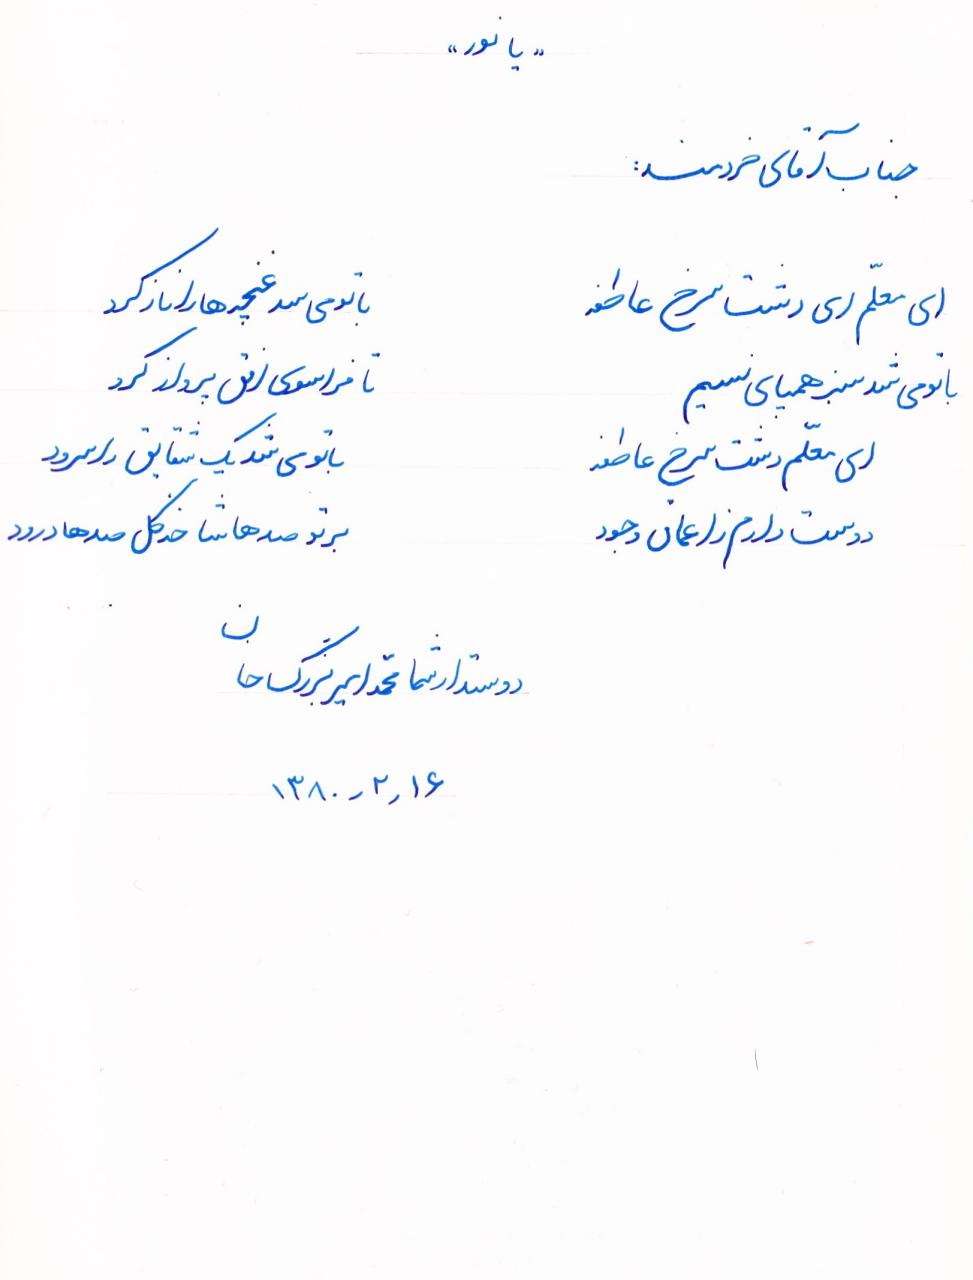 «یا نور»
جناب آقای خردمند:
ای معلّم ای دشت سرخ عاطفه با تو می شد غنچه ها را ناز کرد
با تو می شد سبز همپای نسیم تا فراسوی افق پرواز کرد
ای معلّم دشت سرخ عاطفه با تو می شد یک شقایق را سرود
دوست دارم از اعماق وجود بر تو صدها شاخه گل صدها درود
دوستدار شما محمد امیر بزرگ جان
۱۳۸۰/۲/۱۶